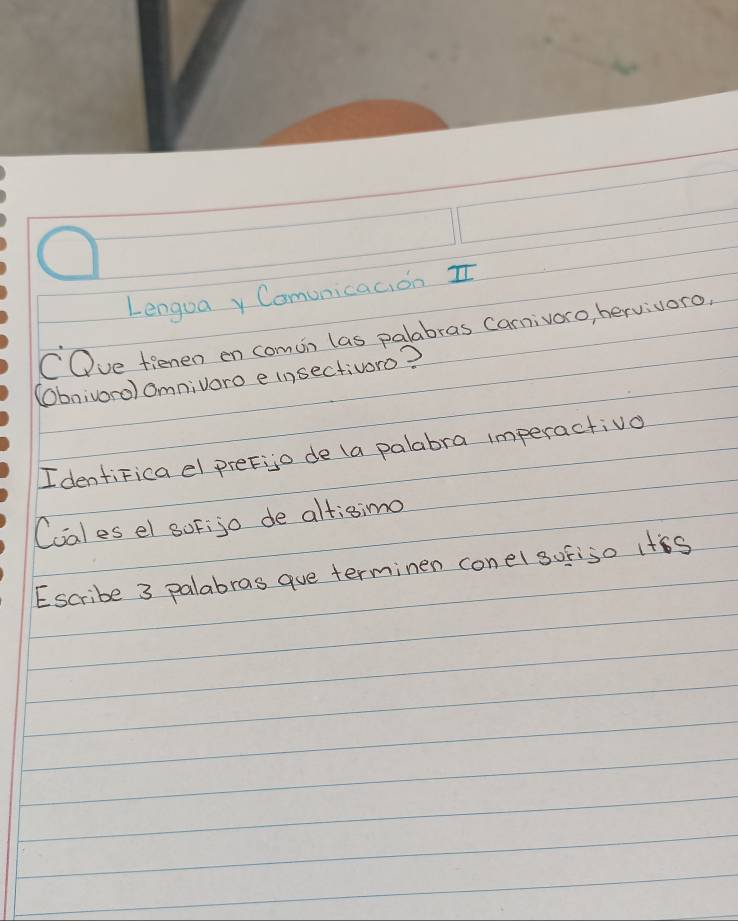 Lengua y Comunicación II
¿Que tienen en común las palabras carnivoro, hervivoro,
(Obnivoro) Omnivoro e insectivoro?
Identifica el prefijo de la palabra imperactivo
Cuál es el sufijo de altisimo
Escribe 3 palabras que terminen con el sufijo itis